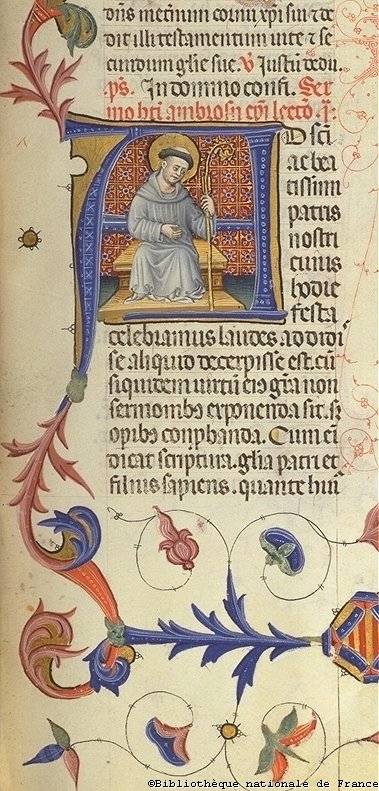 dit illi testamentum vite et se
cundum glie sue. V Justū dedu.
ps. In domino confi. Ser
mo bti ambrosii epi lectō. i.
AD sci
ac bea
tissimi
patris
nostri
cuius
hodie
festa
celebramus laudes addidi
se aliquid decerpisse est. cū
siquidem virtutū eiꝰ grā non
sermonibꝰ exponenda sit. sꝫ
opibꝰ conprobanda. Cum em
dicat scriptura. glia patris est
filius sapiens. quante huiꝰ
©Bibliothèque nationale de France